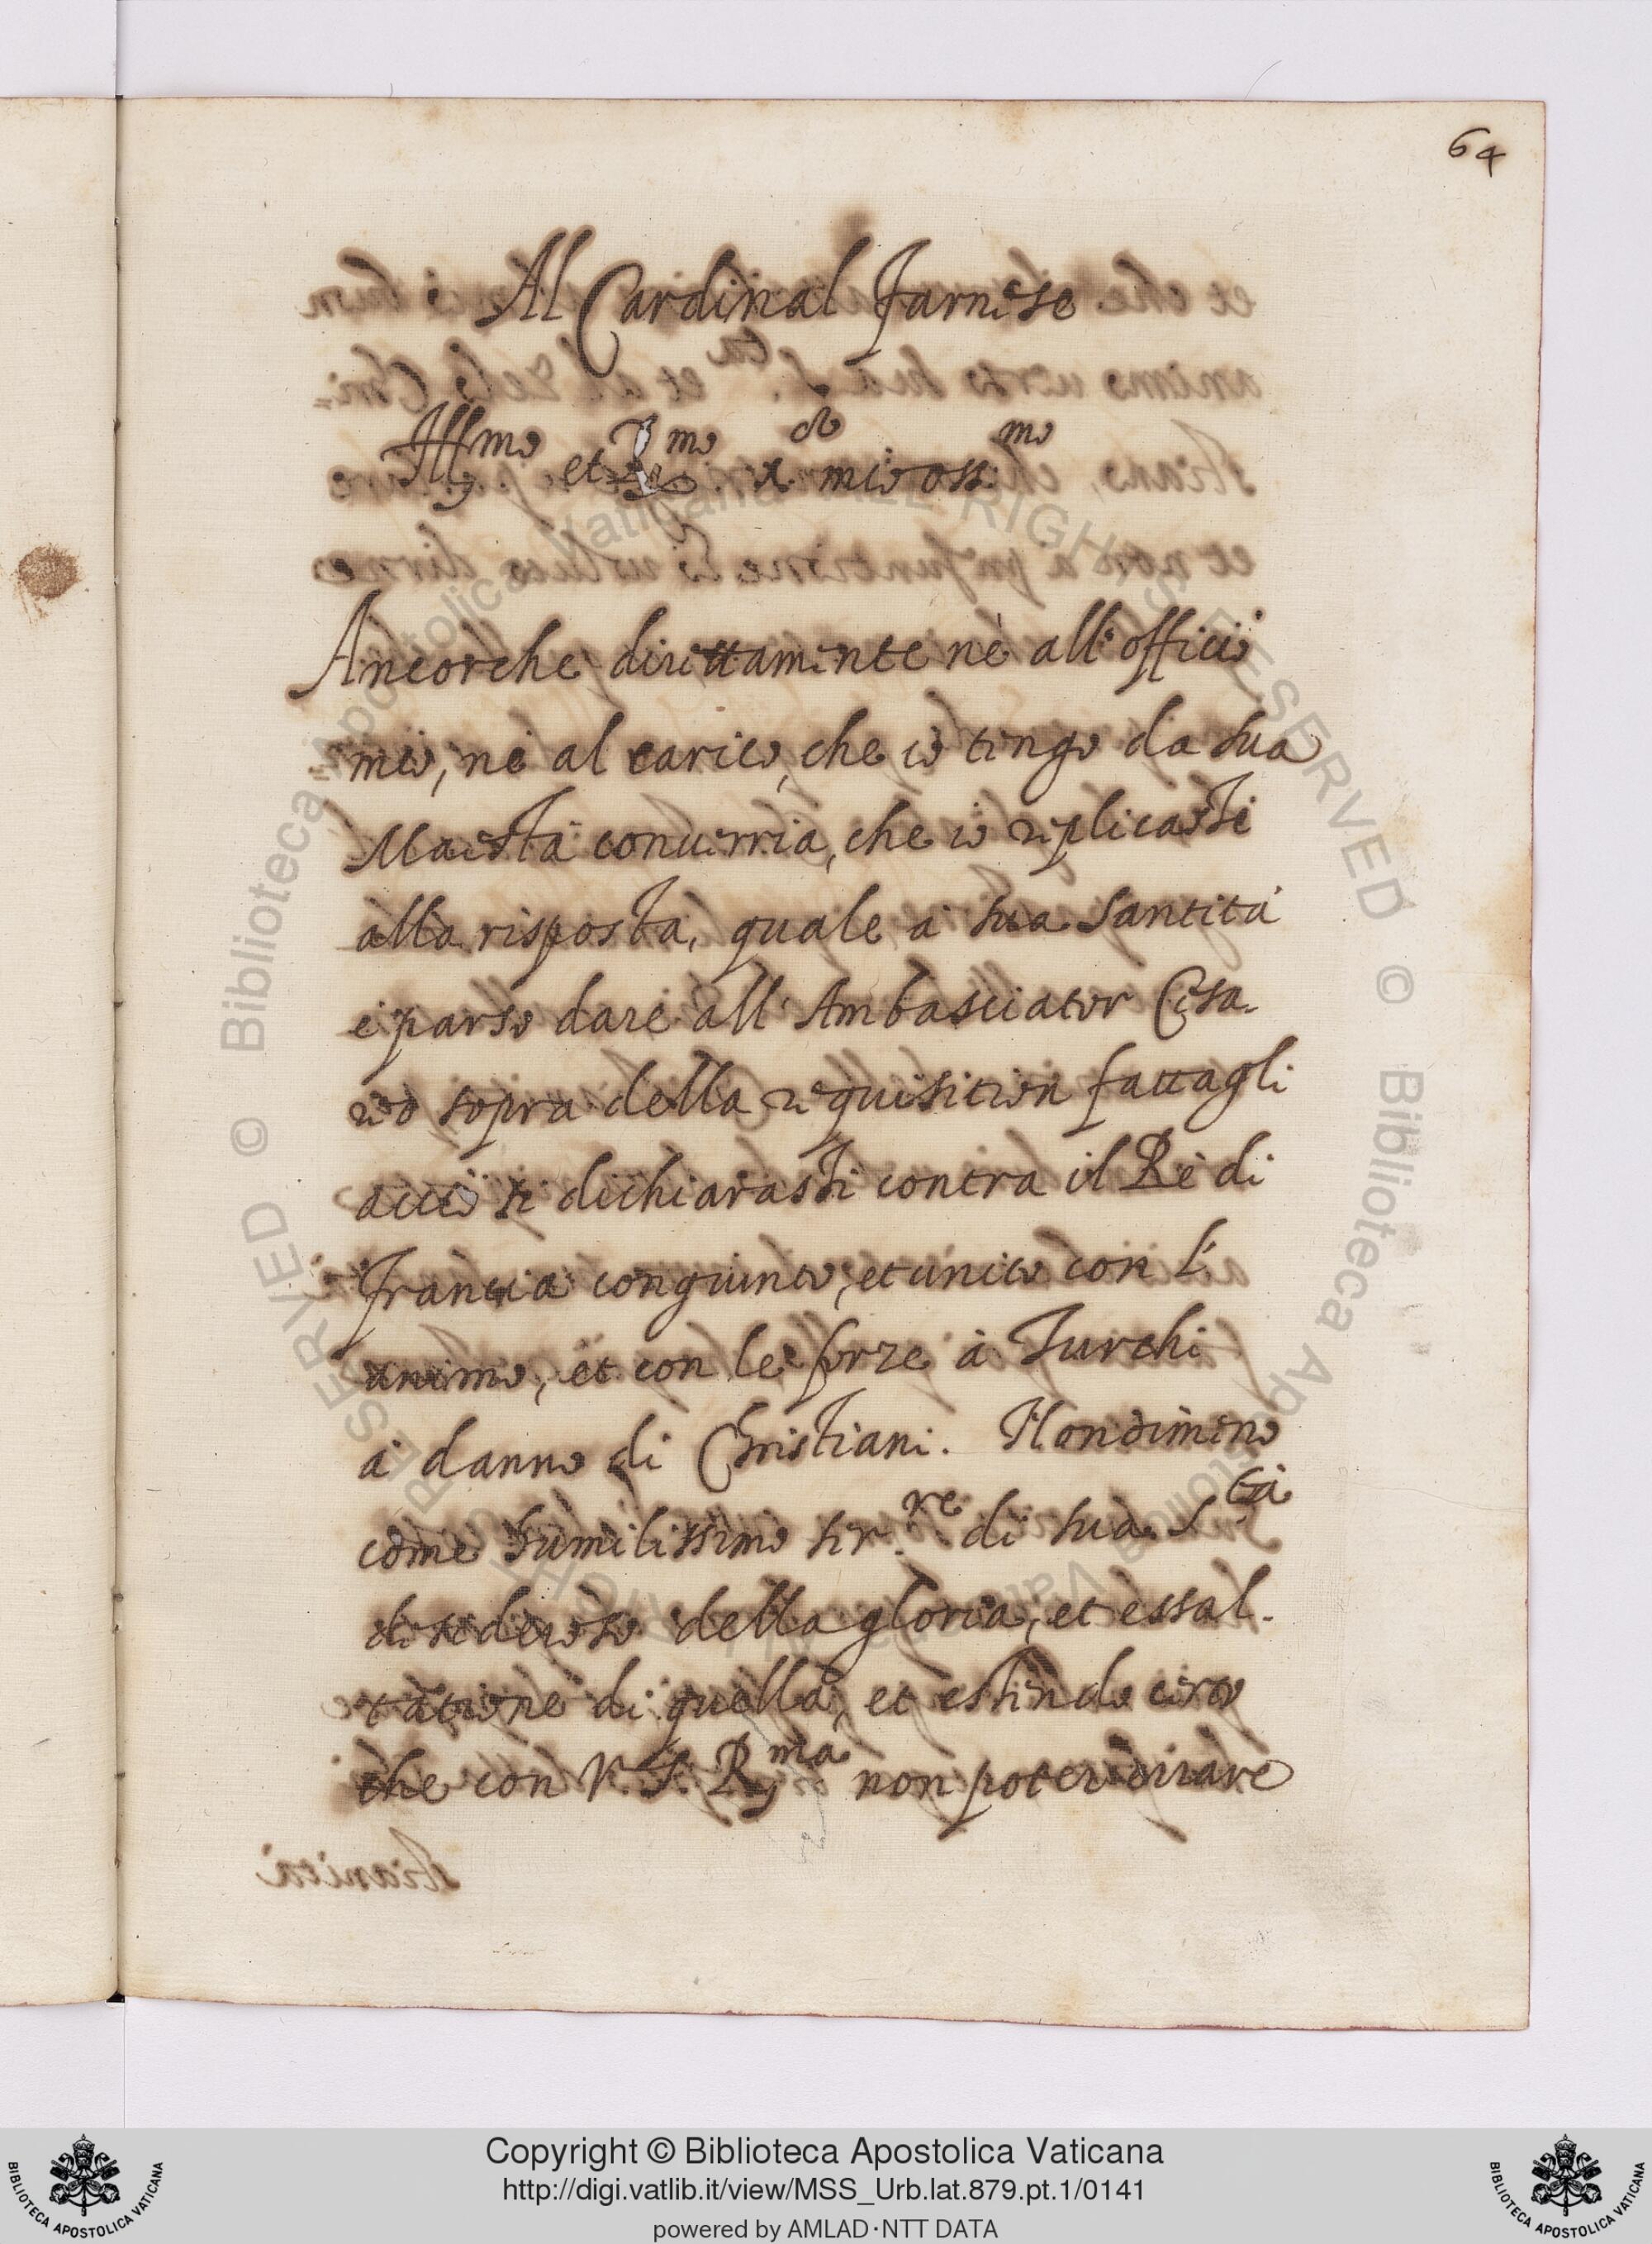 64
Al Cardinal Farnese
Ill.mo et R.mo S.or mio oss.mo
Ancorche direttamente nè all'officio
mio, nè al carico, che io tengo da sua
Maestà converria, che io replicassi
alla risposta, quale à sua Santità
è parso dare all'Ambasciator Cesa-
reo sopra della requisition fattagli
acciò si dichiarassi contra il Rè di
Francia congiunto, et unito con l'
animo, et con le forze à Turchi
à danno di Christiani. Nondimeno
come humilissimo ser.re di sua S.tà
desideroso della gloria, et essal-
tatione di quella, et essendo certo
che con V. S. R.ma non poter errare
Copyright © Biblioteca Apostolica Vaticana
http://digi.vatlib.it/view/MSS_Urb.lat.879.pt.1/0141
powered by AMLAD·NTT DATA
BIBLIOTECA APOSTOLICA VATICANA
BIBLIOTECA APOSTOLICA VATICANA